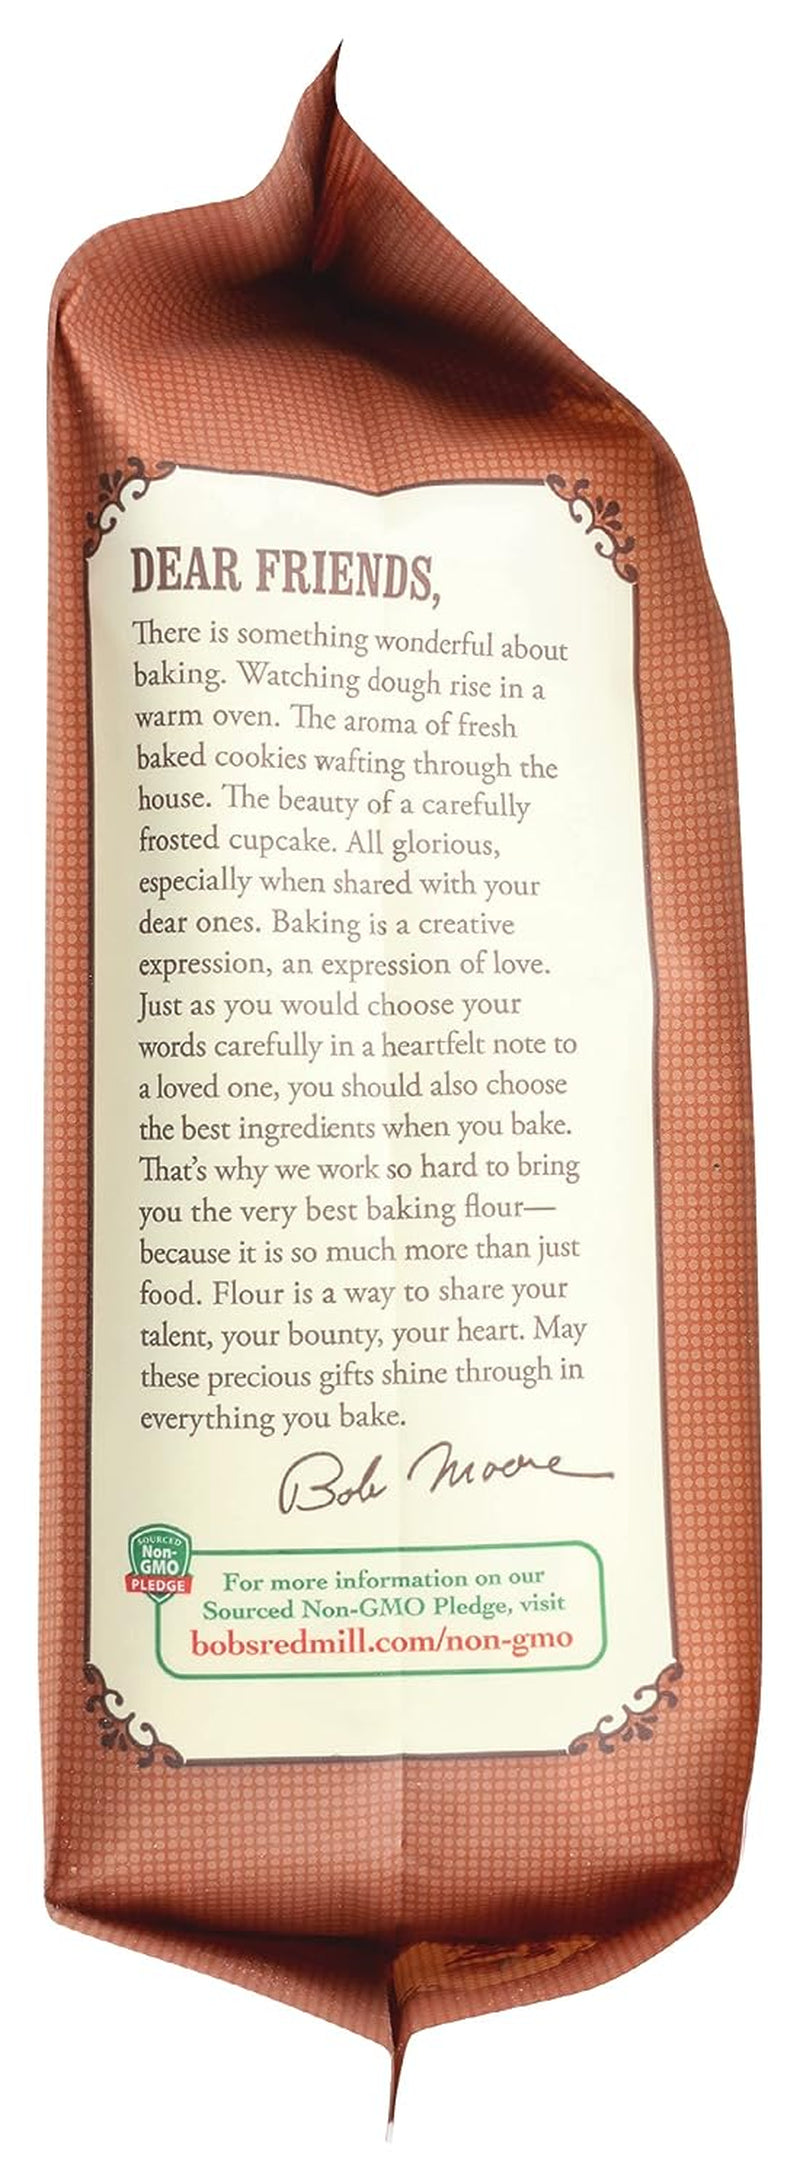 DEAR FRIENDS,
There is something wonderful about
baking. Watching dough rise in a
warm oven. The aroma of fresh
baked cookies wafting through the
house. The beauty of a carefully
frosted cupcake. All glorious,
especially when shared with your
dear ones. Baking is a creative
expression, an expression of love.
Just as you would choose your
words carefully in a heartfelt note to
a loved one, you should also choose
the best ingredients when you bake.
That's why we work so hard to bring
you the very best baking flour—
because it is so much more than just
food. Flour is a way to share your
talent, your bounty, your heart. May
these precious gifts shine through in
everything you bake.
Bob Moore
SOURCED
Non-
GMO
PLEDGE
For more information on our
Sourced Non-GMO Pledge, visit
bobsredmill.com/non-gmo